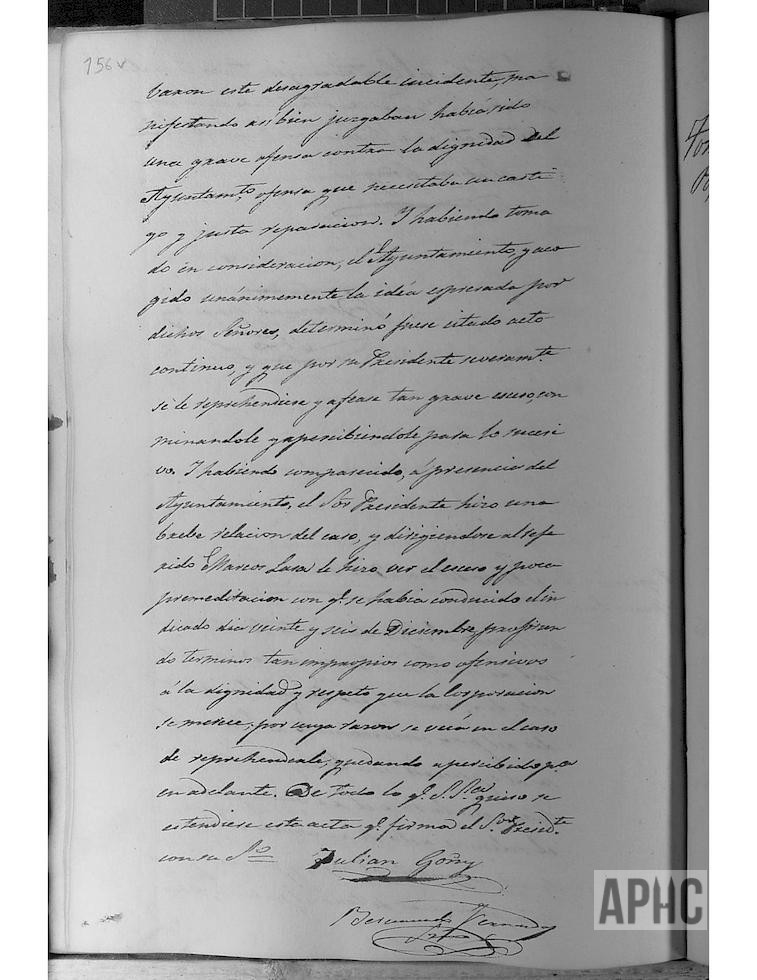 156v
baron este desagradable incidente, ma
nifestando asi bien juzgaban habia sido
una grave ofensa contra la dignidad del
Ayuntamto, ofensa que necesitaba un casti
go y justa reparacion. Y habiendo toma
do en consideracion, el Ayuntamiento, y aco
gido unánimemente la idéa espresada por
dichos Señores, determinó fuese citado acto
continuo, y que por su Presidente severamte
se le reprehendiese y afease tan grave esceso, con
minandole y apercibiendole para lo sucesi
vo. Y habiendo comparecido, á presencia del
Ayuntamiento, el Sor Presidente hizo una
brebe relacion del caso, y dirigiendose al refe
rido Marcos Lasa le hizo ver el esceso y poca
premeditacion con q. se habia conducido el in
dicado dia veinte y seis de Diciembre profirien
do terminos tan impropios como ofensivos
á la dignidad y respeto que la Corporacion
se merece, por cuya razon se veia en el caso
de reprehenderle, quedando apercibido pa
en adelante. De todo lo q. S. Sria quiso se
estendiese esta acta q. firma el Sor Presidte
con su Sio Julian Goñy
APHC